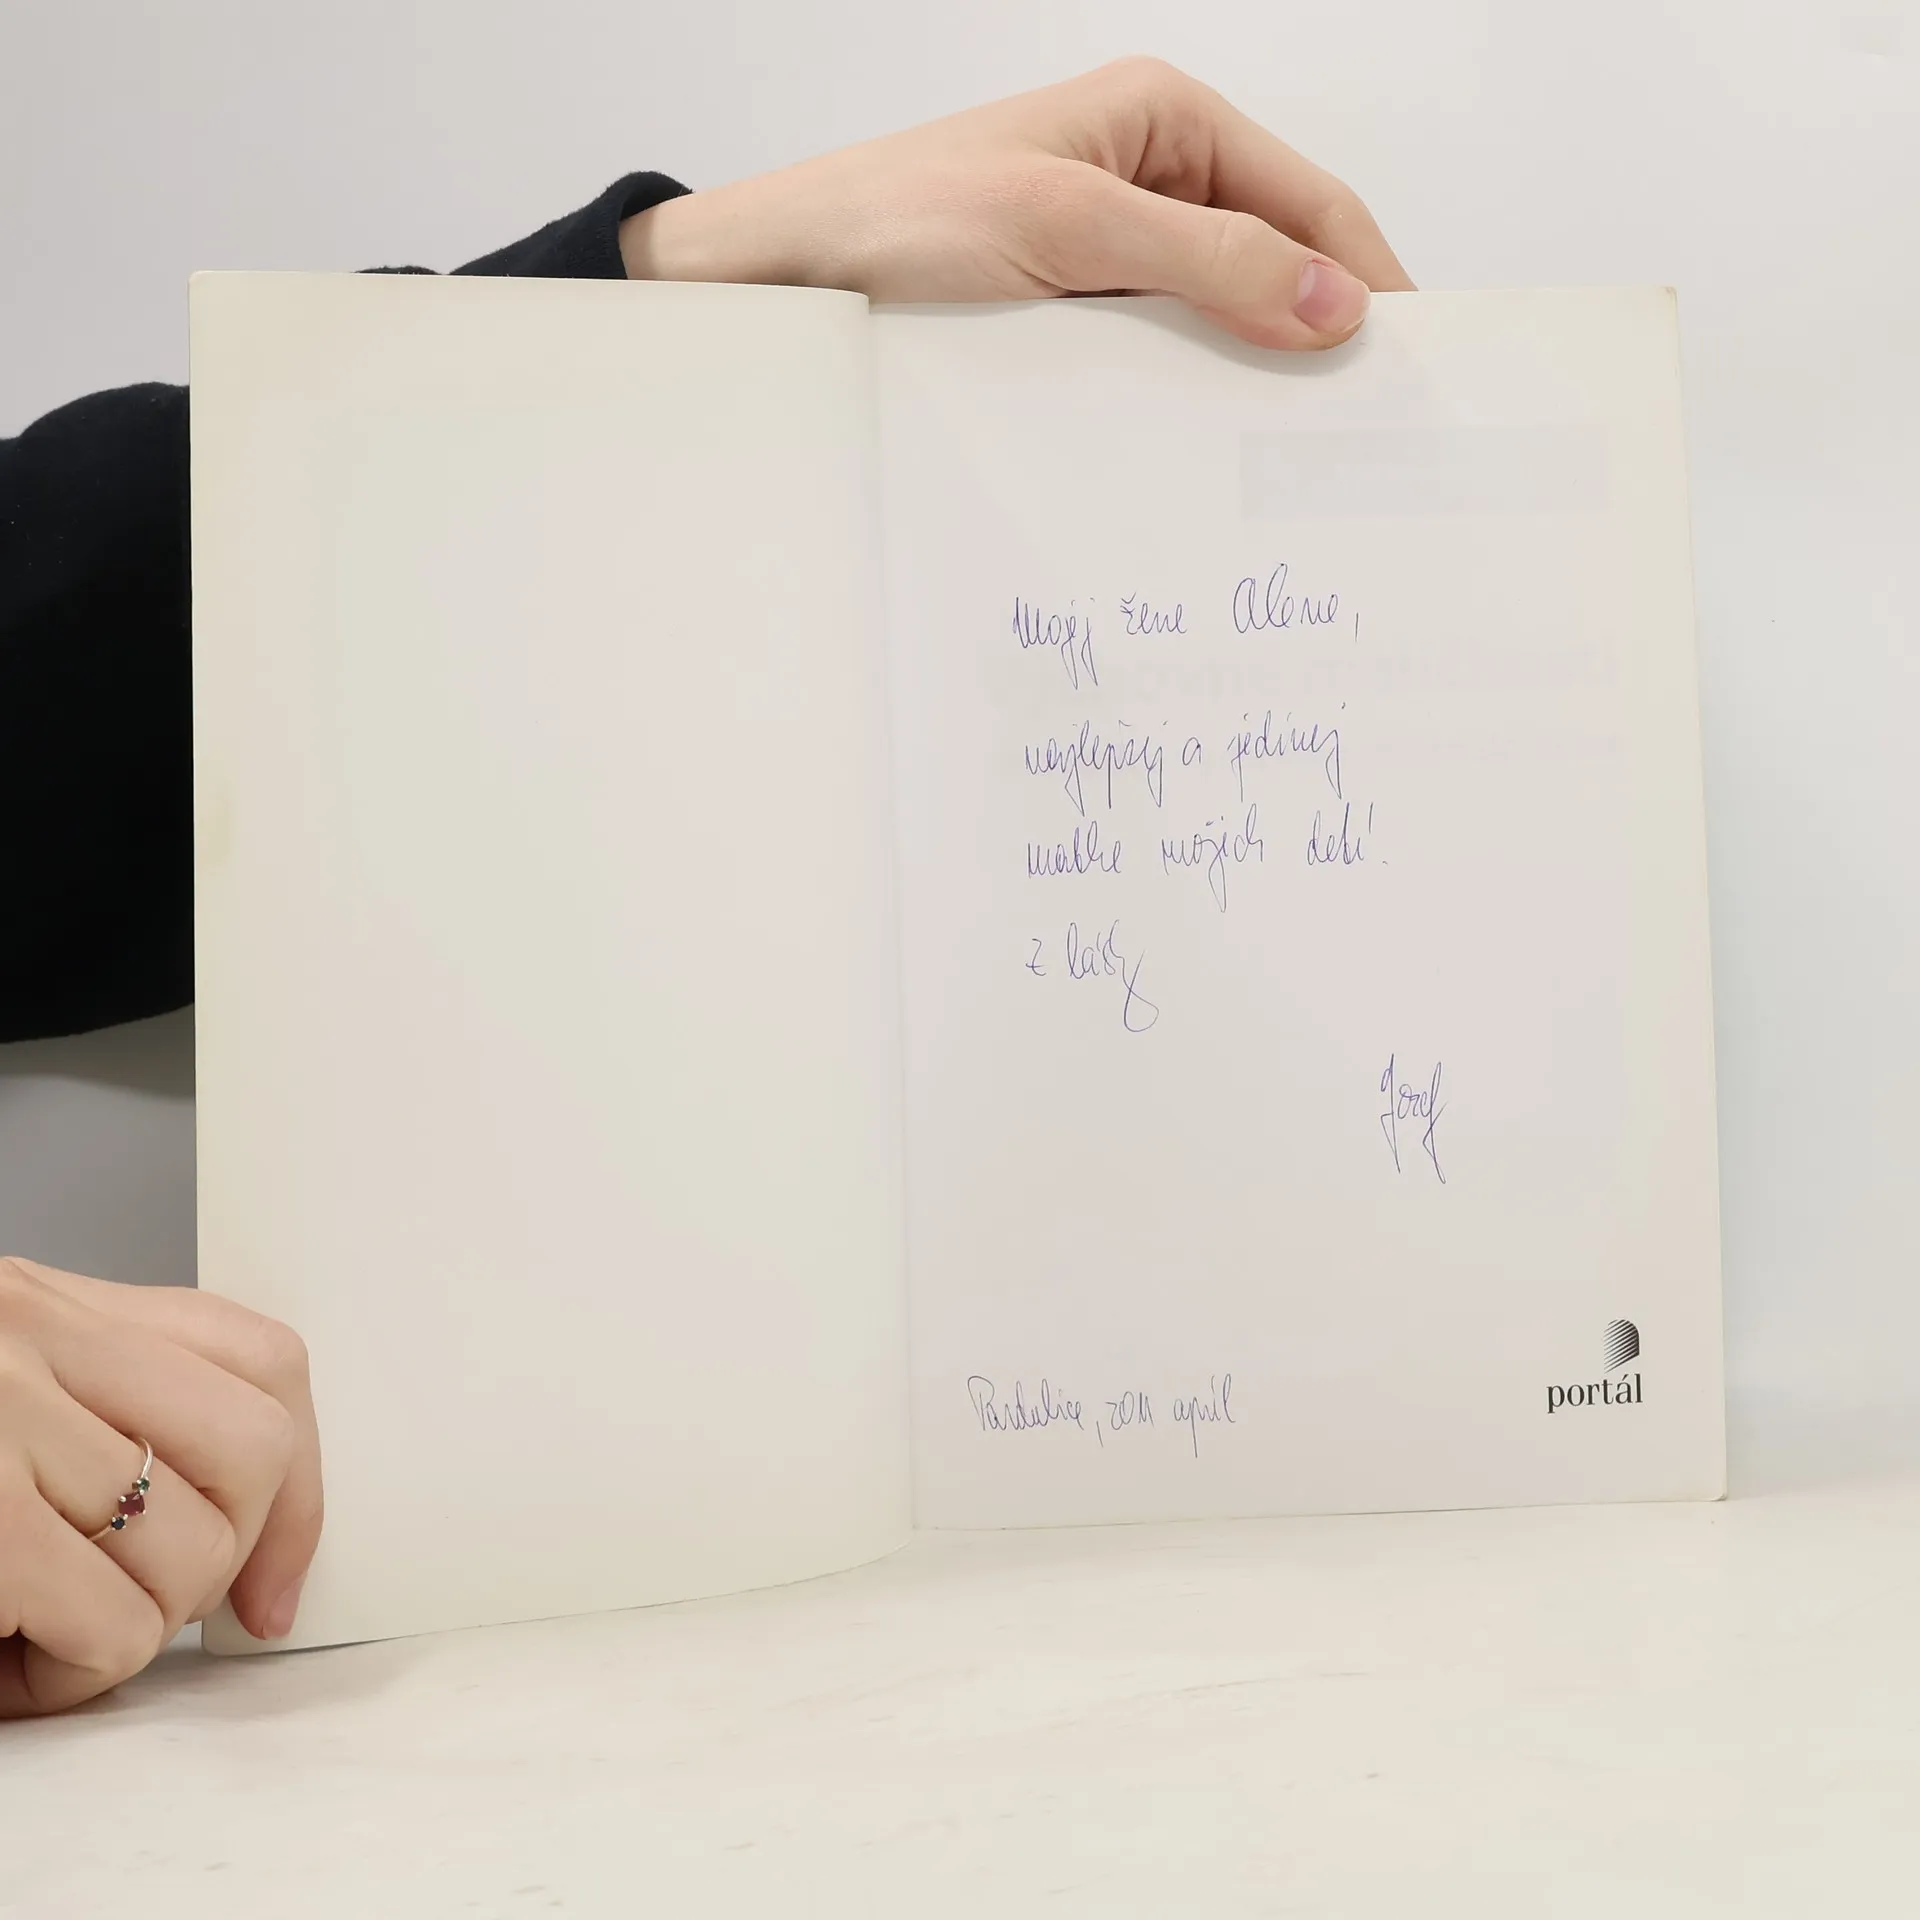 Mojej žene Alene,
najlepšej a jedinej
matke mojich detí.
Z lásky
Jozef
Pardubice, 2011 apríl
portál